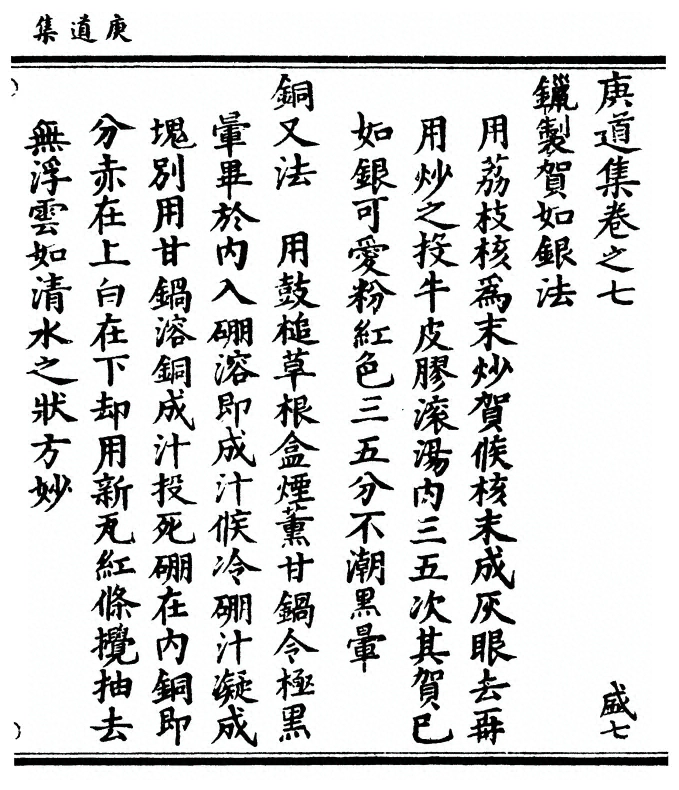 庚道集
庚道集卷之七
盛七
鑞製賀如銀法
用荔枝核爲末炒賀候核末成灰眼去再
用炒之投牛皮膠滚湯內三五次其賀已
如銀可愛粉紅色三五分不潮黑暈
銅又法　用鼓槌草根盒煙薰甘鍋令極黑
暈畢於內入硼溶即成汁候冷硼汁凝成
塊別用甘鍋溶銅成汁投死硼在內銅即
分赤在上白在下却用新瓦紅條攪抽去
無浮雲如清水之狀方妙